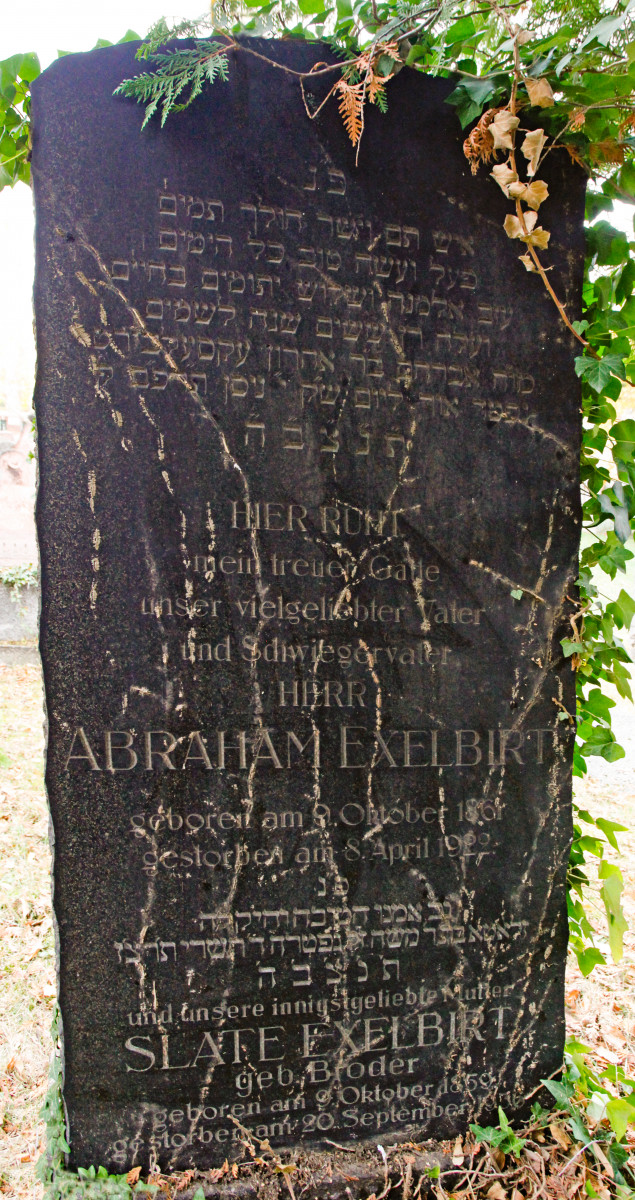 פ נ
איש תם וישר הולך תמים
פעל ועשה טוב כל הימים
עם אלמנה ושלוש יתומים בחיים
ועלה בן ששים שנה לשמים
אברהם בר אהרון עקסעלבירט
אור ליום שק י ניסן
ת נ צ ב ה
HIER RUHT
mein treuer Gatte
unser vielgeliebter Vater
und Schwiegervater
HERR
ABRAHAM EXELBIRT
geboren am 9. Oktober 1861
gestorben am 8. April 1922
פ נ
אמנו
משה נפטרה ד תשרי
ת נ צ ב ה
und unsere innigstgeliebte Mutter
SLATE EXELBIRT
geb. Broder
geboren am 9. Oktober
gestorben am 20. September